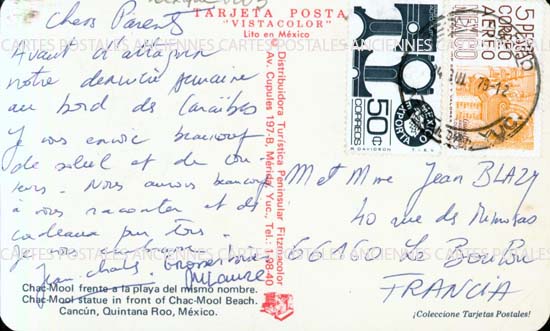 Chers Parents
Avant d'attaquer
notre dernière semaine
au bord des Caraïbes
Je vous envoie beaucoup
de soleil et de cou-
leurs. Nous aurons beaucoup
à vous raconter et des
cadeaux pour tous.
Je vous embrasse
Jean-Charles. Grosses bises
TARJETA POSTAL
"VISTACOLOR"
Lito en México
© Distribuidora Turística Peninsular Fitzmacolor
Av. Cupules 197-B, Mérida, Yuc., Tel.: 1-98-40
50¢
CORREOS
MEXICO
EXPORTA
5 PESOS
CORREO
AEREO
MEXICO
M et Mme Jean BLAZY
40 rue des Mimosas
66160 Le Boulou
FRANCIA
Chac-Mool frente a la playa del mismo nombre.
Chac-Mool statue in front of Chac-Mool Beach.
Cancún, Quintana Roo, México.
¡Coleccione Tarjetas Postales!
CARTES POSTALES ANCIENNES